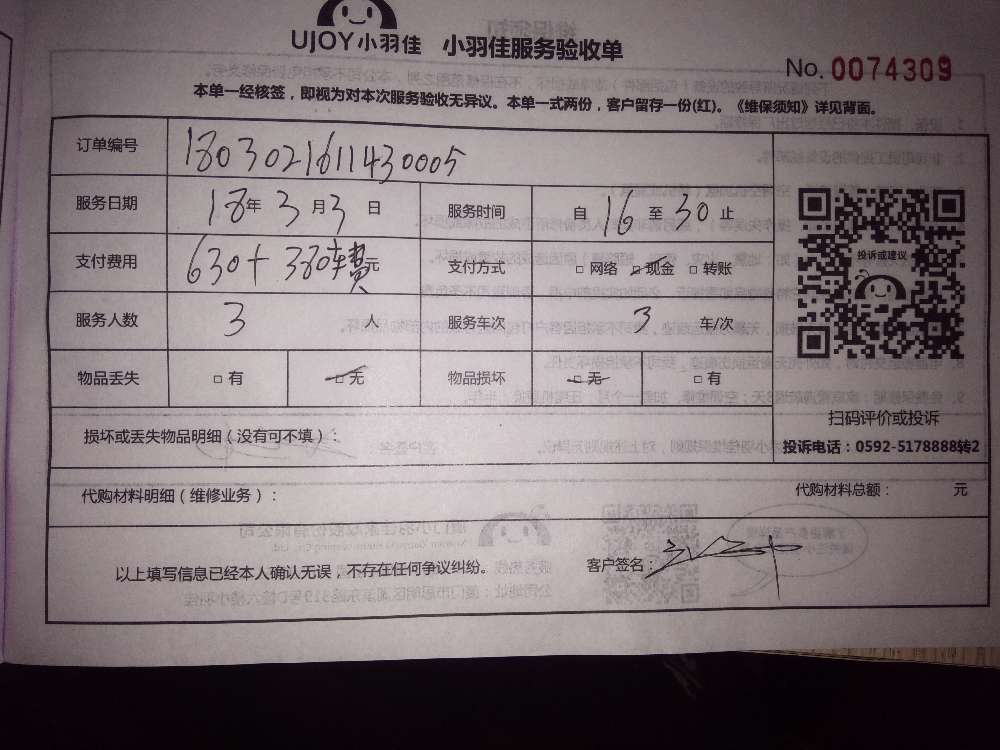 UJOY小羽佳 小羽佳服务验收单
No. 0074309
本单一经核签，即视为对本次服务验收无异议。本单一式两份，客户留存一份(红)。《维保须知》详见背面。
订单编号 1803021611430005
服务日期 18年3月3日 服务时间 自16至30止
支付费用 630+380车费元 支付方式 □ 网络 □ 现金 □ 转账
投诉或建议
服务人数 3 人 服务车次 3 车/次
物品丢失 □ 有 □ 无 物品损坏 □ 无 □ 有
扫码评价或投诉
损坏或丢失物品明细（没有可不填）：
投诉电话：0592-5178888转2
代购材料明细（维修业务）： 代购材料总额： 元
以上填写信息已经本人确认无误，不存在任何争议纠纷。 客户签名：